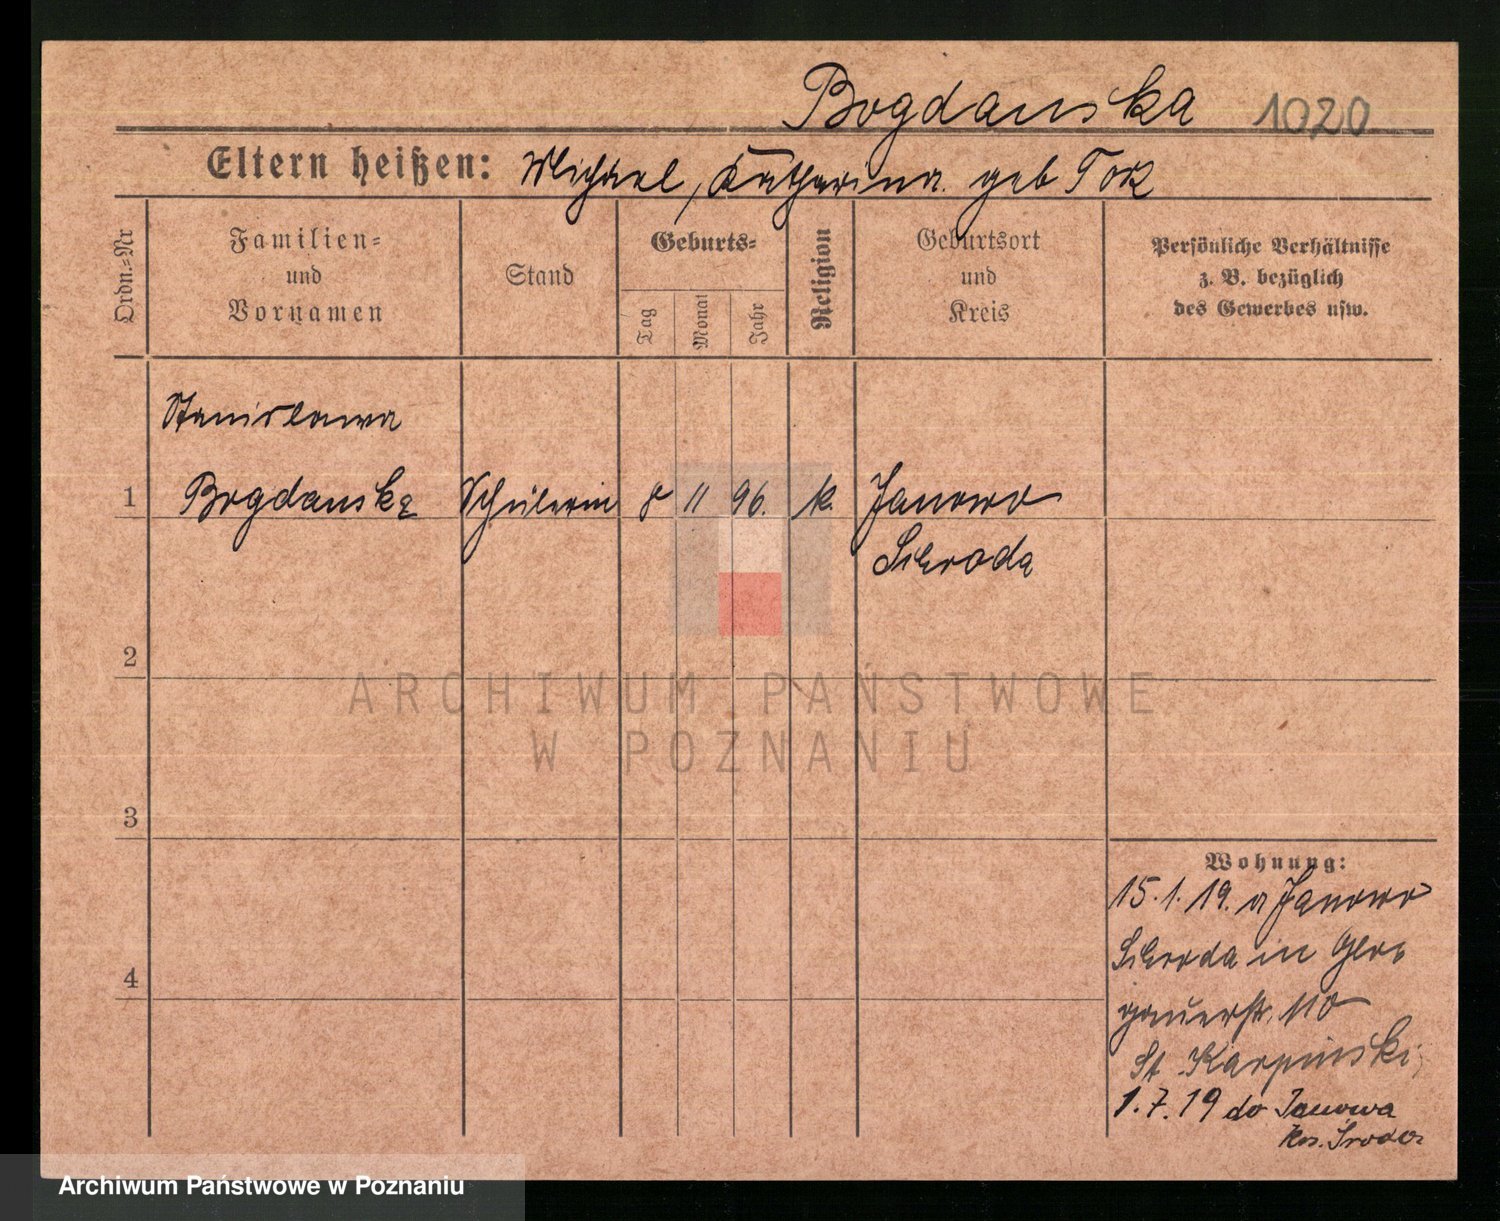 Bogdanska 1020
Eltern heißen: Michael, Katharina geb Tok
Ordn.-Nr
Familien-
und
Vornamen
Stand
Geburts-
Tag
Monat
Jahr
Religion
Geburtsort
und
Kreis
Persönliche Verhältnisse
z. B. bezüglich
des Gewerbes usw.
Stanislawa
1 Bogdanska Schülerin 8 11 96. k. Janowo
Schroda
2
ARCHIWUM PAŃSTWOWE
W POZNANIU
3
Wohnung:
15.1.19. a Janowo
Schroda in Glo
4
gauerstr. 110
St. Karpinski
1.7.19 do Janowa
Archiwum Państwowe w Poznaniu